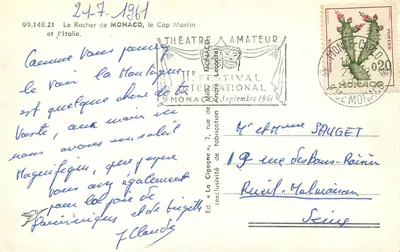 21-7-1961
99.148.21 Le Rocher de MONACO, le Cap Martin
et l'Italie.
THÉATRE AMATEUR
MONACO
1er FESTIVAL
INTERNATIONAL
MONACO Septembre 1961
MONTE-CARLO
0,20
MONACO
Ed. "La Cigogne", 7, rue de
exclusivité de fabrication André Leconte
Comme vous pouvez
le voir la Montagne
est quelque chose de très
Vaste, aux mers
nous avons un soleil
Magnifique, que j'espère
vous avez également
pour la joie de
Dominique et de Brigitte
J Claude
Mr et Mme SAUGET
19 rue des Bons-Raisin
Rueil-Malmaison
Seine